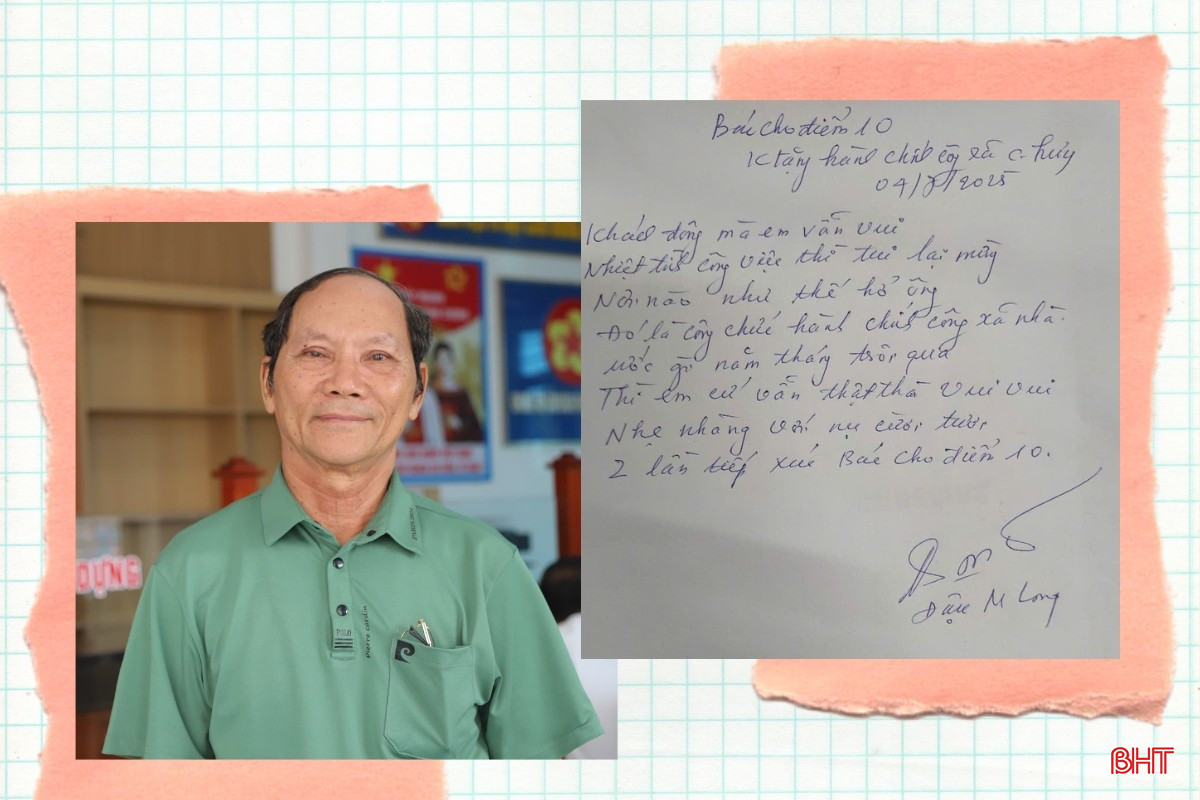 Bác cho điểm 10
K tặng hành chính công xã C. Huy
04/8/2025
Khách đông mà em vẫn vui
Nhiệt tình công việc thì tui lại mừng
Nơi nào như thế hỡ ông
Đó là công chức hành chính công xã nhà.
ước gì năm tháng trôi qua
Thì em cứ vẫn thật thà vui vui
Nhẹ nhàng với nụ cười tươi
2 lần tiếp xúc Bác cho điểm 10.
Đậu M Long
DỤNG
POLO
Pierre cardin
BHT